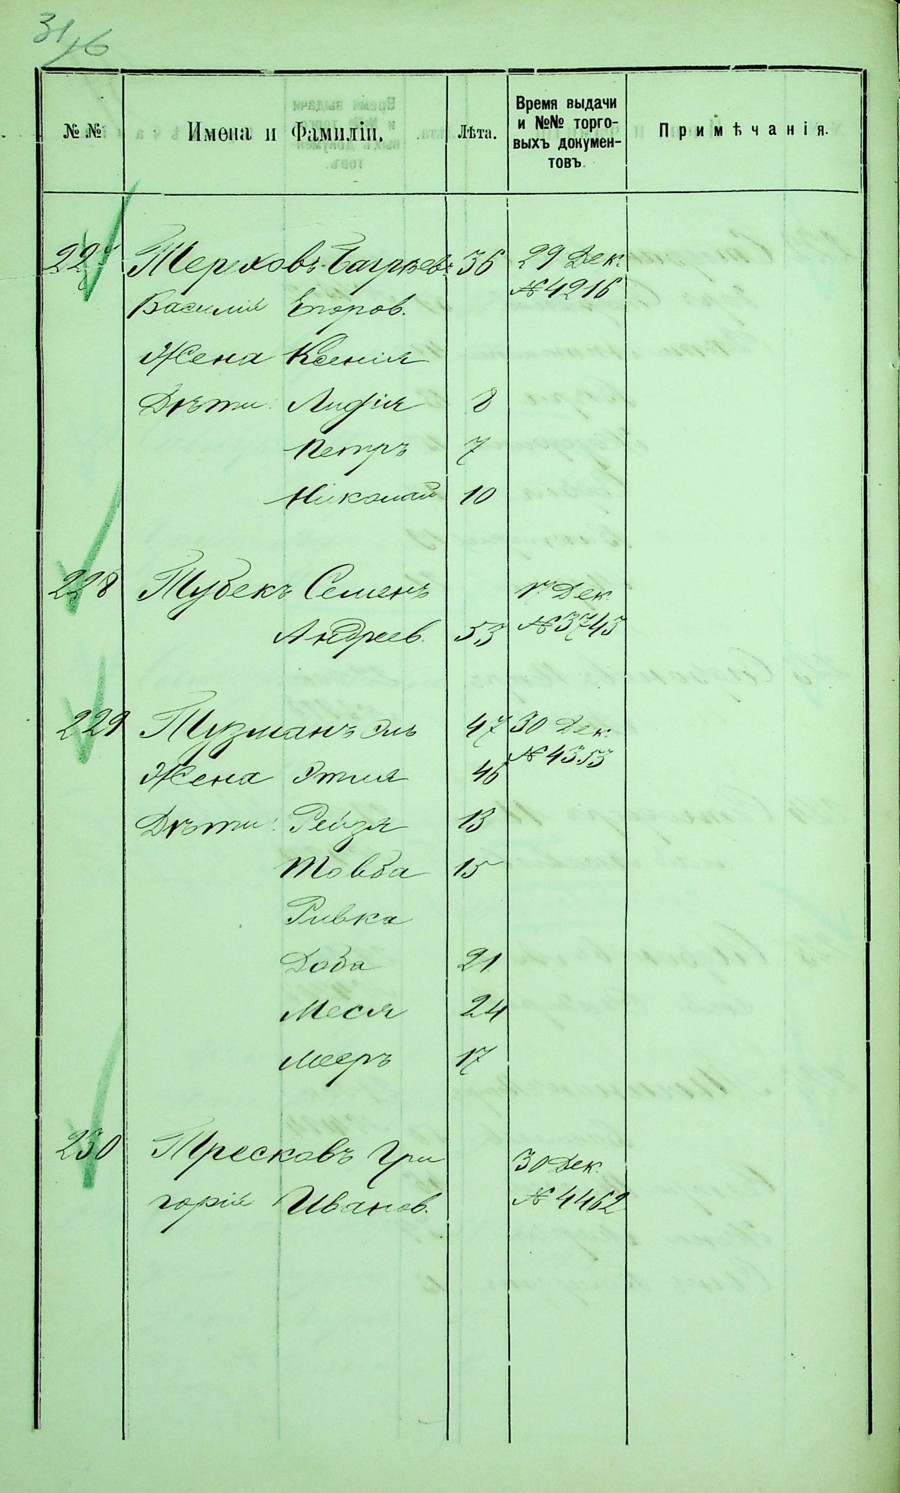 31/16
№№ Имена и Фамиліи. Лѣта. Время выдачи и №№ торговыхъ документовъ. Примѣчанія.
227 Тереховъ 36 29 Дек.
Василій Егоров. № 4216
Жена Ксенія
Дѣти: Лидія 8
Петръ 7
Николай 10
228 Тубекъ Семенъ 1го Дек
Андреев. 53 № 3745
229 Тузманъ Эль 47 30 Дек.
Жена Этля 46 № 4353
Дѣти: Рейзя 13
Товба 15
Ривка
Доба 21
Меся 24
Мееръ 17
230 Тресковъ Гри 30 Дек.
горій Иванов. № 4462